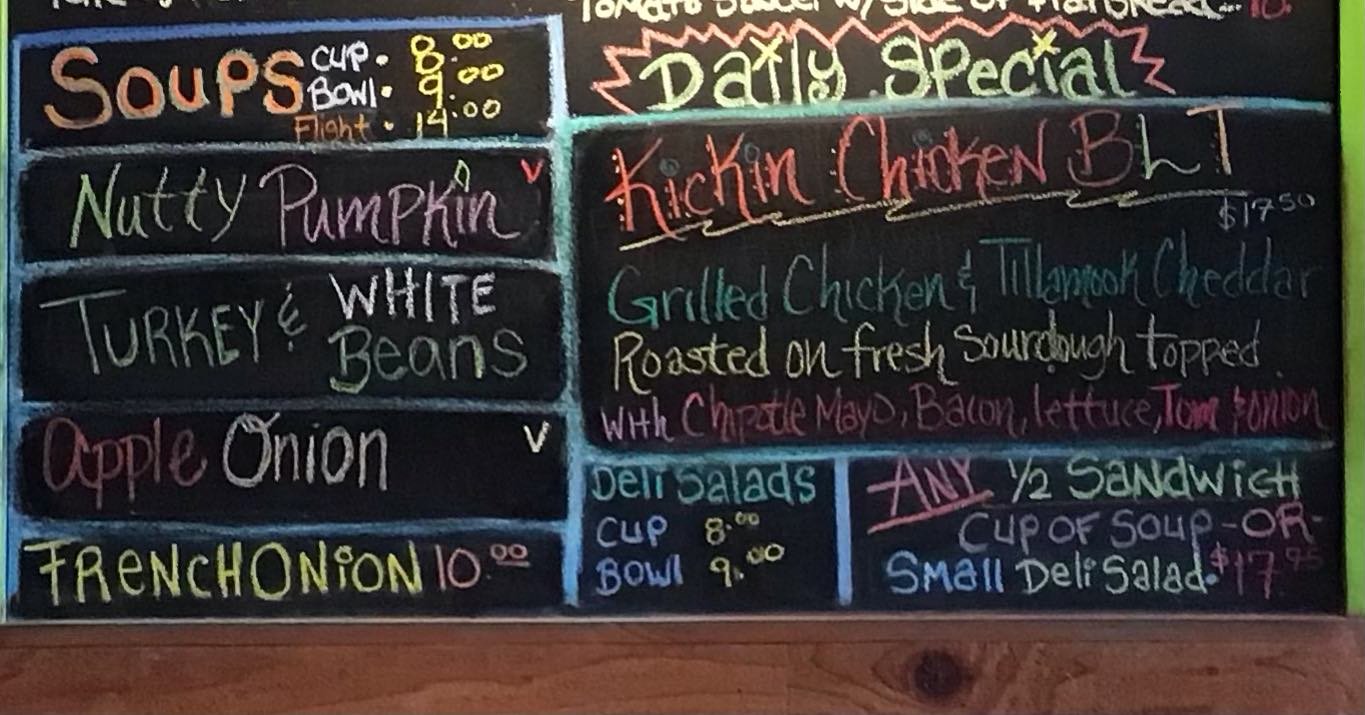 Tomato Sauce w/ Side of Flatbread... 10.
SOUPS
CUP. 8.00
BOWl. 9.00
Flight. 14.00
Nutty Pumpkin V
TURKEY & WHITE
Beans
apple Onion V
FRENCH ONiON 10.00
Daily Special
KicKin ChicKeN BLT
$17.50
Grilled Chicken & Tillamook Cheddar
Roasted on fresh Sourdough topped
with Chipotle Mayo, Bacon, lettuce, Tom & onion
Deli Salads
CUP 8.00
BOWl 9.00
ANY 1/2 SANDWiCH
CUP OF SOUP -OR-
SMall Deli Salad. $17.95